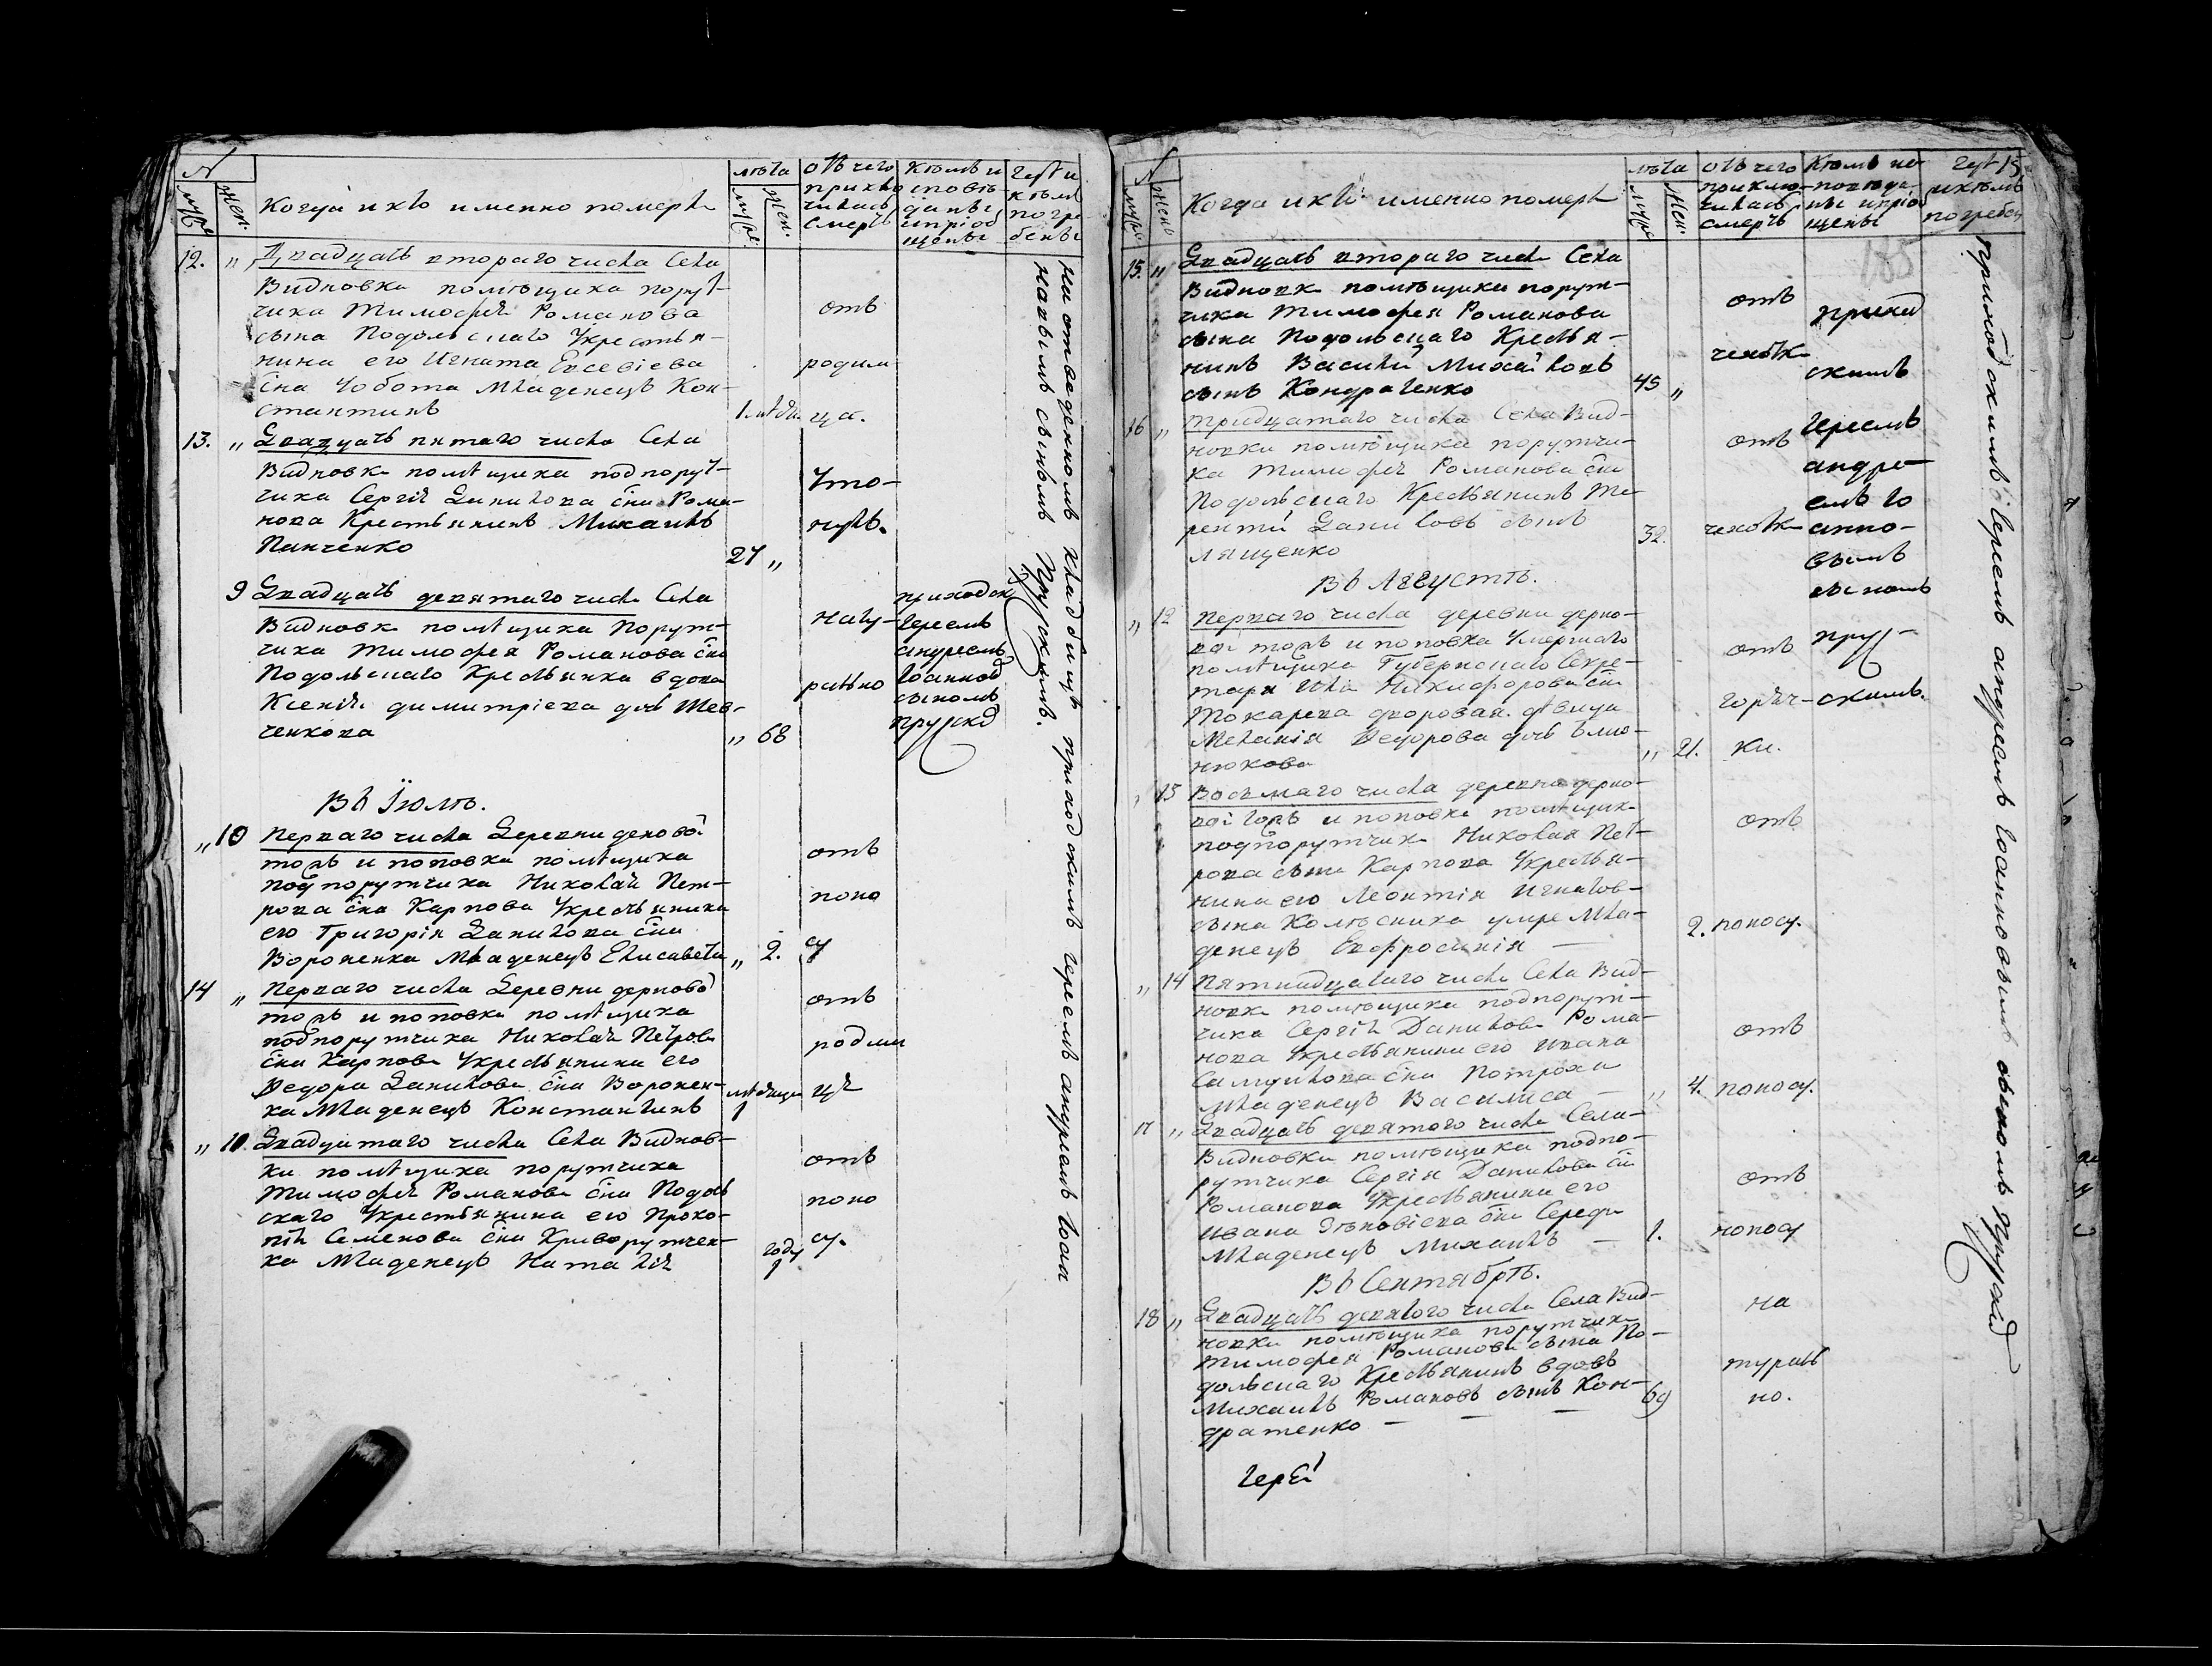 N
муж.
жен.
Когда и кто именно померъ
лѣта
муж.
жен.
отъ чего
приклю
чилась
смерть
кѣмъ и
сповѣ-
даны
и пріоб
щены
гдѣ и
кѣмъ
погре
бены
12. „ Двадцать втораго числа Села
Видновка помѣщика порут-
чика Тимофея Романова
сына Подольскаго Укрестья-
нина его Игната Евсевіева
сна Чобота младенецъ Кон-
стантинъ
отъ
родим
ца.
13. „ Двадцать пятаго числа Села
Видновки помѣщика подпорут-
чика Сергія Данилова сна Рома-
нова Крестьянинъ Михаилъ
Панченко
27 „
Уто-
нулъ.
9 Двадцать девятаго числа Села
Видновки помѣщика Порут-
чика Тимофея Романова сна
Подольскаго Крестьянка вдова
Ксенія димитріева дчь Шев-
ченкова
„ 68
нату-
рально
приходск
Іереемъ
андреемъ
Іоаннов
сыномъ
прурскд
Въ Іюлѣ.
„ 10 Перваго числа Деревни дерновой
топъ и поповка помѣщика
подпорутчика Николая Пет-
рова сна Карпова Укрестьянина
его Григорія Данилова сна
Вороненка Младенецъ Елисавета
„ 2.
отъ
поно
су
14 „ Перваго числа Деревни дерново
топъ и поповки помѣщика
подпорутчика Николая Петрова
сна Карпова Укрестьянина его
Федора Данилова сна Воронен-
ка Младенецъ Константинъ
1
отъ
родим
ця
„ 10. Двадцатаго числа Села Виднов-
ки помѣщика порутчика
Тимофея Романова сна Подоль
скаго Укрестьянина его Проко-
пія Семенова сна Криворутчен-
ка Младенецъ Наталія
году
1
отъ
поно
су.
на отведенномъ кладбищѣ приходскимъ Іереемъ андреемъ Іоан
новымъ сыномъ Прурскимъ.
N
муж.
жен.
Когда и кто именно померъ
лѣта
муж.
жен.
отъ чего
приклю-
чилась
смерть
Кѣмъ ис-
повѣда-
ны и пріоб
щены
гдѣ
и кѣмъ
погребен
15
185
15. „ Двадцать втораго числа Села
Видновки помѣщика порут-
чика Тимофея Романова
сына Подольскаго Крестья-
нинъ Василій Михайловъ
сынъ Кондратенко
45 „
отъ
чехотк
16 „ Тридцатаго числа Села Вид-
новки помѣщика порутчи-
ка Тимофея Романова сна
Подольскаго Крестьянинъ Те-
рентій Даниловъ сынъ
Лященко
32.
отъ
чехотк
приход
скимъ
Іереемъ
андре-
емъ Іо
анно-
вымъ
сыномъ
прур-
скимъ.
Въ Августѣ.
„ 12 Перваго числа деревни дерно-
вой топъ и поповка Умершаго
помѣщика Губернскаго Секре-
таря Ильи Никифорова сна
Токарева дворовая дѣвица
Меланія Федорова дчь
„ 21.
отъ
горяч-
ки.
„ 13 Восьмаго числа деревни дерно-
вой топъ и поповки помѣщик
подпорутчика Николая Пет-
рова сына Карпова Укрестья-
нина его Леонтія Игнатов-
сына Колѣсника умре Мла-
денецъ Евфросинія —
2.
отъ
поносу.
„ 14 Пятнадцатаго числа Села Вид-
новки помѣщика подпорут-
чика Сергія Данилова Рома-
нова Укрестьянина его Ивана
Самуилова сна Потрохи
Младенецъ Василиса —
„ 4.
отъ
поносу.
17 „ Двадцать девятого числа Села
Видновки помѣщика подпо-
рутчика Сергія Данилова сна
Романова Укрестьянина его
Ивана Зѣновіева сна Середи
Младенецъ Михаилъ —
1.
отъ
поносу
Въ Сентябрѣ.
18 „ Двадцать девятого числа Села Вид-
новки помѣщика порутчика
Тимофея Романова сына По-
дольскаго Крестьянинъ вдовъ
Михаилъ Романовъ сынъ Кон-
дратенко — — —
69
на
турал
но.
Іерей
приходскимъ Іереемъ андреемъ Іоанновымъ сыномъ Прурскд